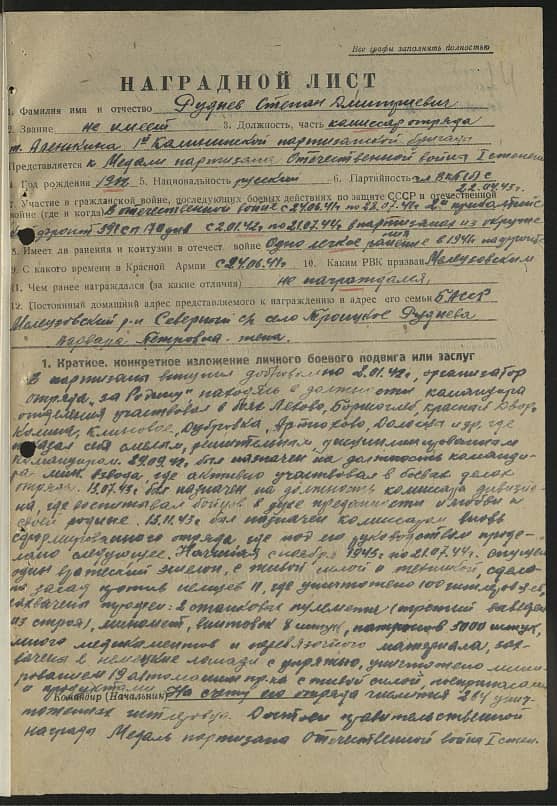 Все графы заполнять полностью
НАГРАДНОЙ ЛИСТ
1. Фамилия имя и отчество Руднев Степан Дмитриевич
2. Звание не имеет 3. Должность, часть комиссар отряда
т. Аленкина 1й Калининской партизанской бригады
Представляется к Медали партизана Отечественной война I степени
4. Год рождения 5. Национальность русский 6. Партийность чл ВКП(б) с
22.04.43г.
7. Участие в гражданской войне, последующих боевых действиях по защите СССР и отечественной
войне (где и когда) В отечественной войне с 24.06.41г по 28.07.41г
фронт 391 сп 170 див с 2.01.42г по 21.07.44г в партизанах
8. Имеет ли ранения и контузии в отечест. войне Одно легкое ранение в 1941г
9. С какого времени в Красной Армии с 24.06.41г 10. Каким РВК призван Мелеузовским
11. Чем ранее награждался (за какие отличия) не награждался,
12. Постоянный домашний адрес представляемого к награждению и адрес его семьи БАССР
Мелеузовский р-н Северный с/с село Троицкое Руднева
Варвара Петровна - жена.
1. Краткое, конкретное изложение личного боевого подвига или заслуг
В партизаны вступил добровольно 2.01.42г, организатор
отряда „за Родину" находясь в должности командира
отделения участвовал в боях Ляхово, Борисоглеб, красный Двор,
Колина, Клиновое, Дубровка, Артюхово, и др, где
показал себя смелым, решительным, дисциплинированным
командиром. 29.09.42г был назначен на должность команди-
ра мин. взвода, где активно участвовал в боевых делах
отряда. 13.07.43г был назначен на должность комиссара дивизио-
на, где воспитывал бойцов в духе преданности и любви к
своей родине. 15.11.43г был назначен комиссаром вновь
сформированного отряда где под его руководством проде-
лано следующее. Начиная с ноября 1943г по 21.07.44г. спущен
один вражеский эшелон, с живой силой и техникой, сдела-
но засад против немцев 11, где уничтожено 100 гитлеровцев,
захвачены трофеи: 2 станковых пулемета (третий выведен
из строя), миномет, винтовок 8 штук, патронов 5000 штук,
много медикаментов и перевязочного материала, зах-
вачена 2 немецкие лошади с упряжью, уничтожено мини-
рованием 19 автомашин пр-ка с живой силой, боеприпасами
и продуктами.
Командир (Начальник) На счету его отряда числится 284 унич-
тоженных гитлеровца. Достоин правительственной
награды Медаль партизана Отечественной война I степ.